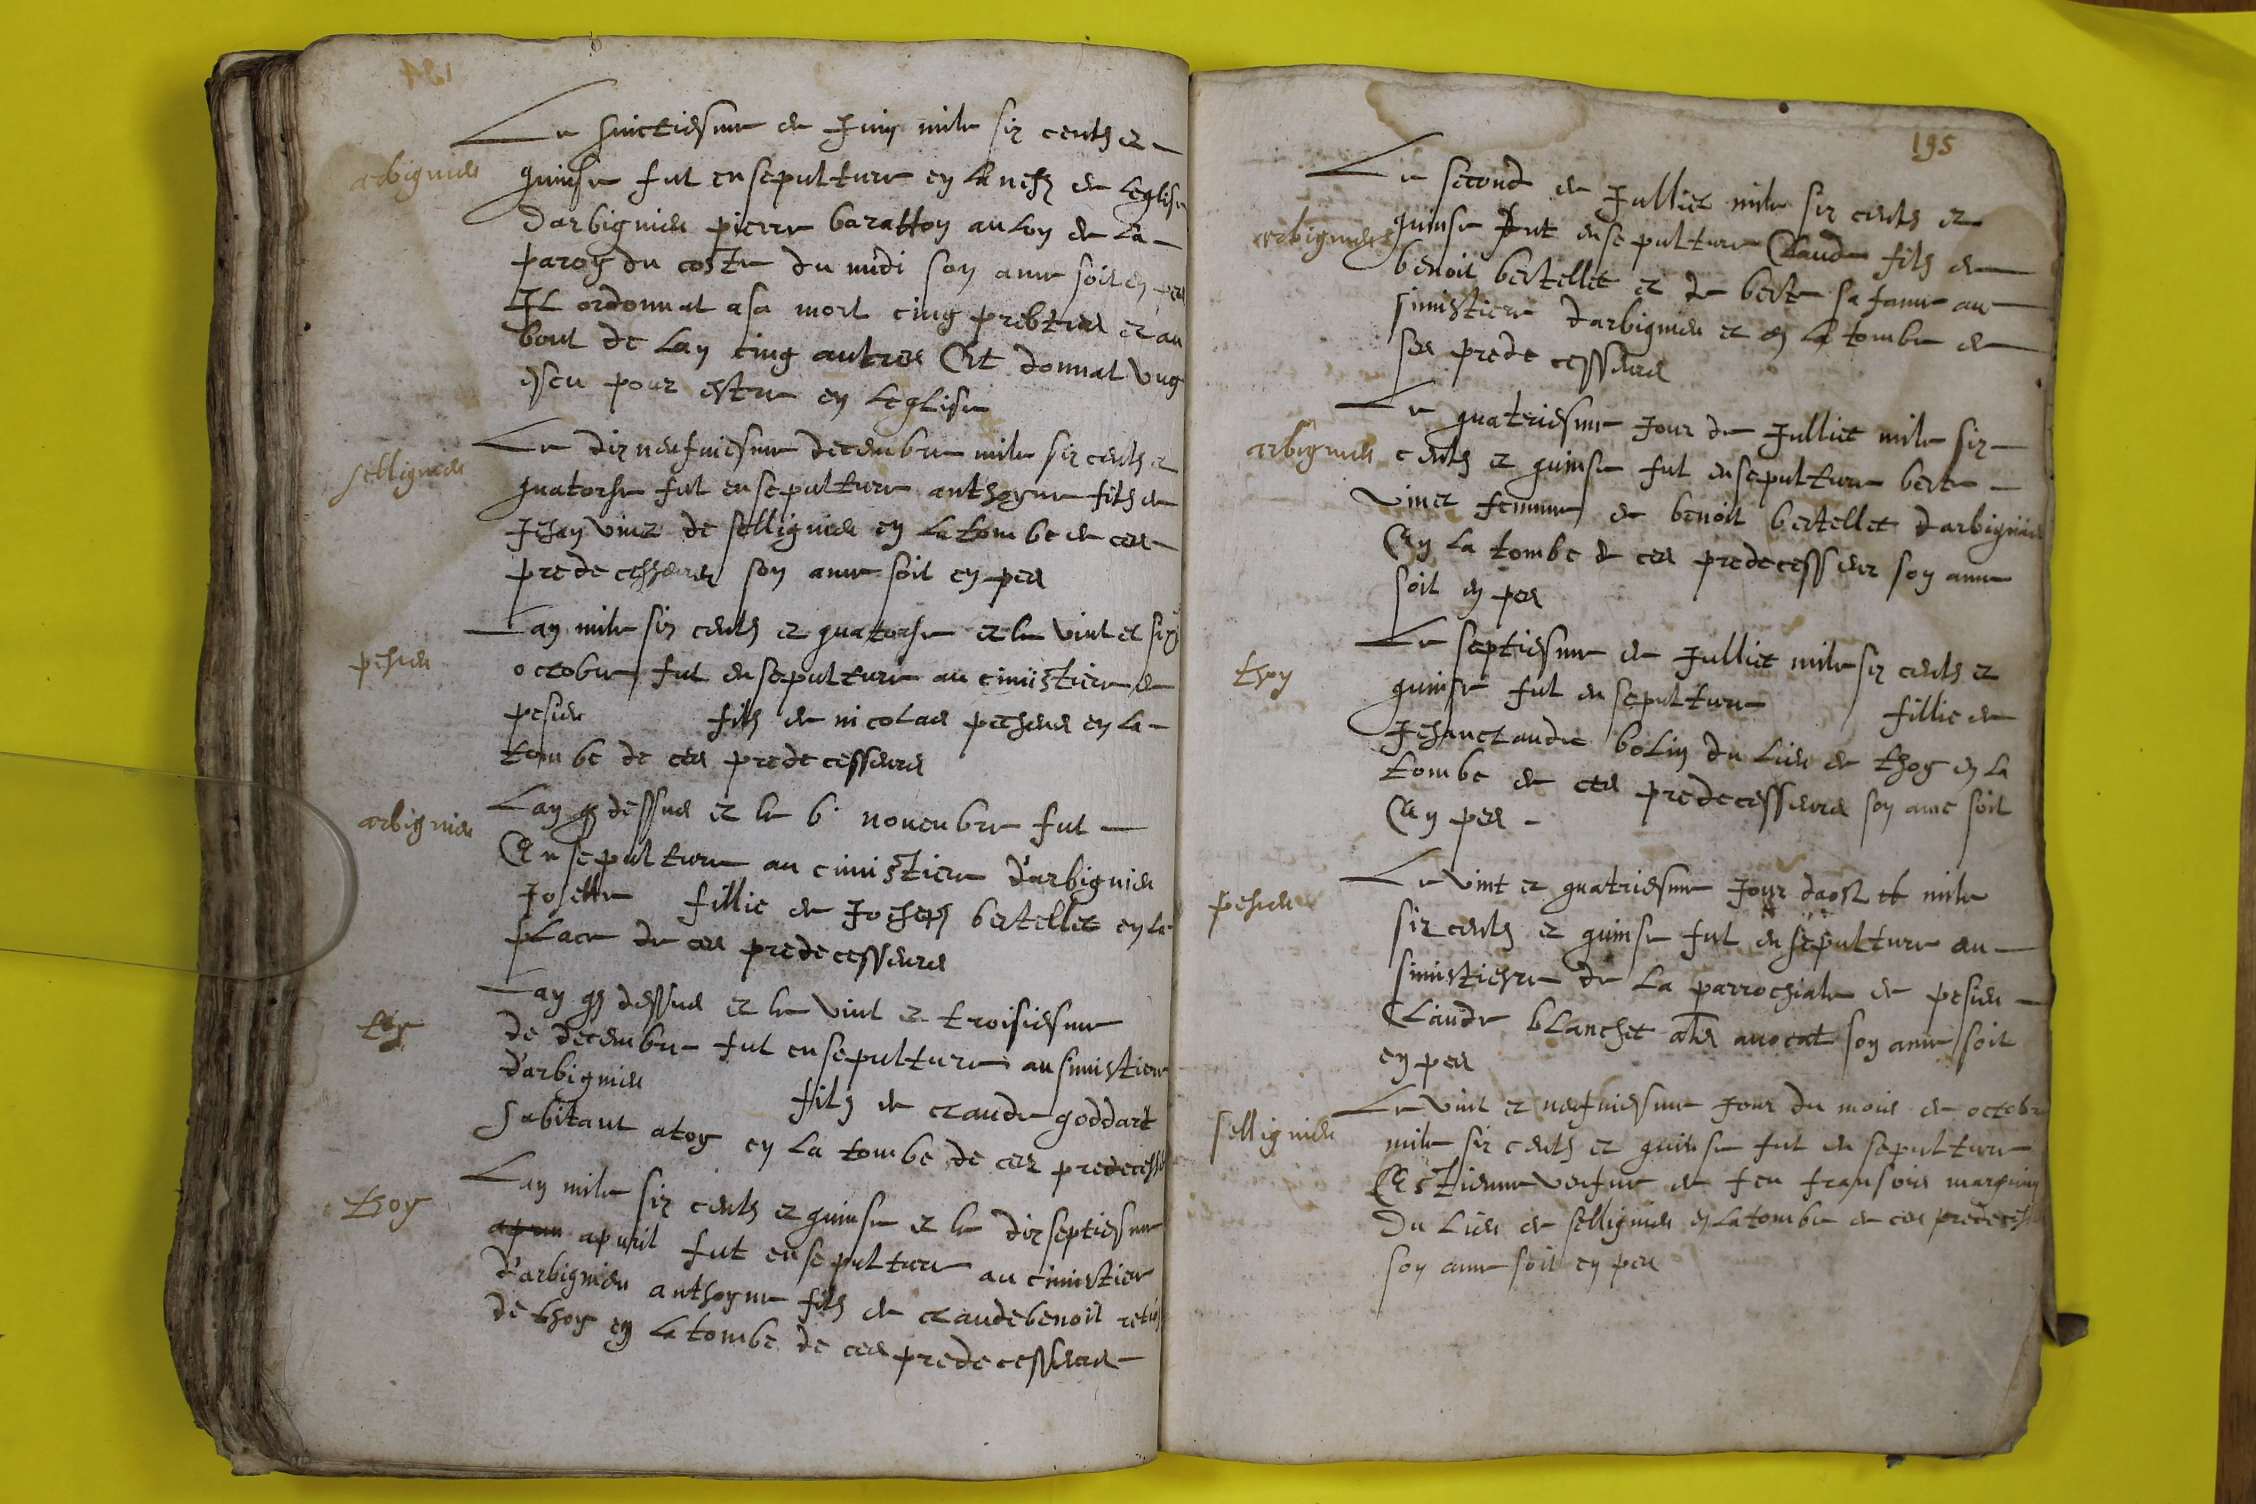 arbignieu
Le huictiesme de Juin mile six cents et
quinse fut ensepulture en la nefz de leglise
Darbignieu pierre baratton au lon de la
paroy du coste du midi son ame soit en pes
Il ordonnat a sa mort cinq prebtres et au
bout de lan cinq autres Et donnat ung
escu pour estre en leglise
sellignieu
Le dix neufviesme decembre mile six cents et
quatorse fut ensepulture anthoyne fils de
Jehan vinet de sellignieu en la tombe de ces
predecesseurs son ame soit en pes
pesieu
Lan mile six cents et quatorse et le vint et six
octobre fut ensepulture au cimistiere de
pesieu fils de nicolas pecheus en la
tombe de ces predecesseurs
arbignieu
Lan dessus et le 6. novembre fut
Ensepulture au cimistiere d'arbignieu
Josette fillie de Jocheph bertellet en la
place de ces predecesseurs
Lan dessus et le vint et troisiesme
de decembre fut ensepulture au simistiere
d'arbignieu fils de claude goddart
habitant a toy en la tombe de ces predecess
thoy
Lan mile six cents et quinse et le dix septiesme
apvril fut ensepulture au cimistiere
d'arbignieu anthoyne fils de claude benoit
de thoy en la tombe de ces predecesseurs
195
arbignieu
Le second de Julliet mile six cents et
quinse fut ensepulture Claude fils de
benoit bertellet et de berte sa fame au
simistiere d'arbignieu et en la tombe de
ses predecesseurs
arbignieu
Le quatriesme Jour de Julliet mile six
cents et quinse fut ensepulture berte
vinet femme de benoit bertellet d'arbignieu
En la tombe de ces predecesseur son ame
soit en pes
thoy
Le septiesme de Julliet mile six cents et
quinse fut ensepulture fillie de
Jehanclaude bolin du lieu de thoy en la
tombe de ces predecesseurs son ame soit
En pes
pesieu
Le vint et quatriesme Jour daost et mile
six cents et quinse fut ensepulture au
simistiere de la parrochiale de pesieu
Claude blanchet avocat son ame soit
en pes
sellignieu
Le vint et neufviesme Jour du mois de octobre
mile six cents et quinse fut ensepulture
Estienne veufve de feu fransois
du lieu de sellignieu en la tombe de ces predecess
son ame soit en pes